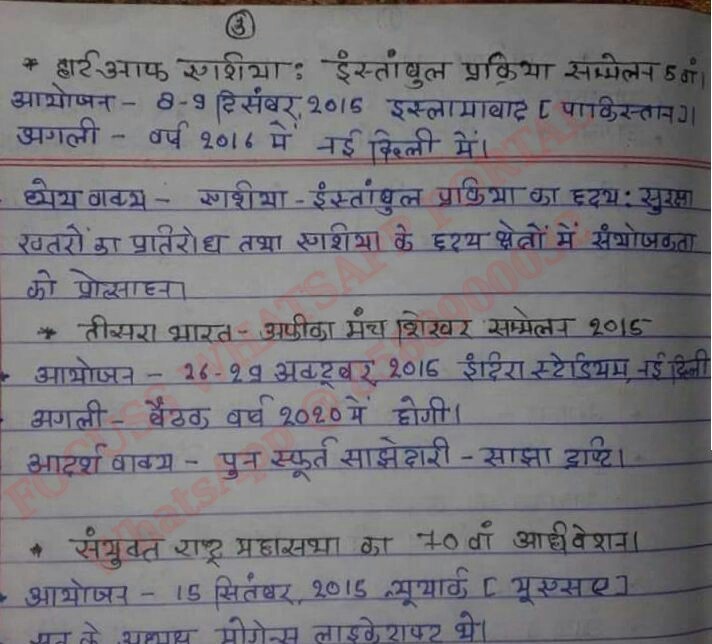 3
* हार्ट आफ एशिया : इंस्तांबुल प्रक्रिया सम्मेलन 5 वां।
आयोजन - 8-9 दिसंबर, 2015 इस्लामाबाद [पाकिस्तान]।
अगली - वर्ष 2016 में नई दिल्ली में।
ध्येय वाक्य - एशिया - इंस्तांबुल प्रक्रिया का हृदय : सुरक्षा
खतरों का प्रतिरोध तथा एशिया के हृदय क्षेत्रों में संयोजकता
को प्रोत्साहन।
* तीसरा भारत - अफ्रीका मंच शिखर सम्मेलन 2015
आयोजन - 26-29 अक्टूबर, 2015 इंदिरा स्टेडियम, नई दिल्ली
अगली - बैठक वर्ष 2020 में होगी।
आदर्श वाक्य - पुन स्फूर्त साझेदारी - साझा दृष्टि।
* संयुक्त राष्ट्र महासभा का 70 वां अधिवेशन।
आयोजन - 15 सितंबर, 2015 न्यूयार्क [यूएसए]
के अध्यक्ष मोगेन्स लाइकेटाफ्ट थे।